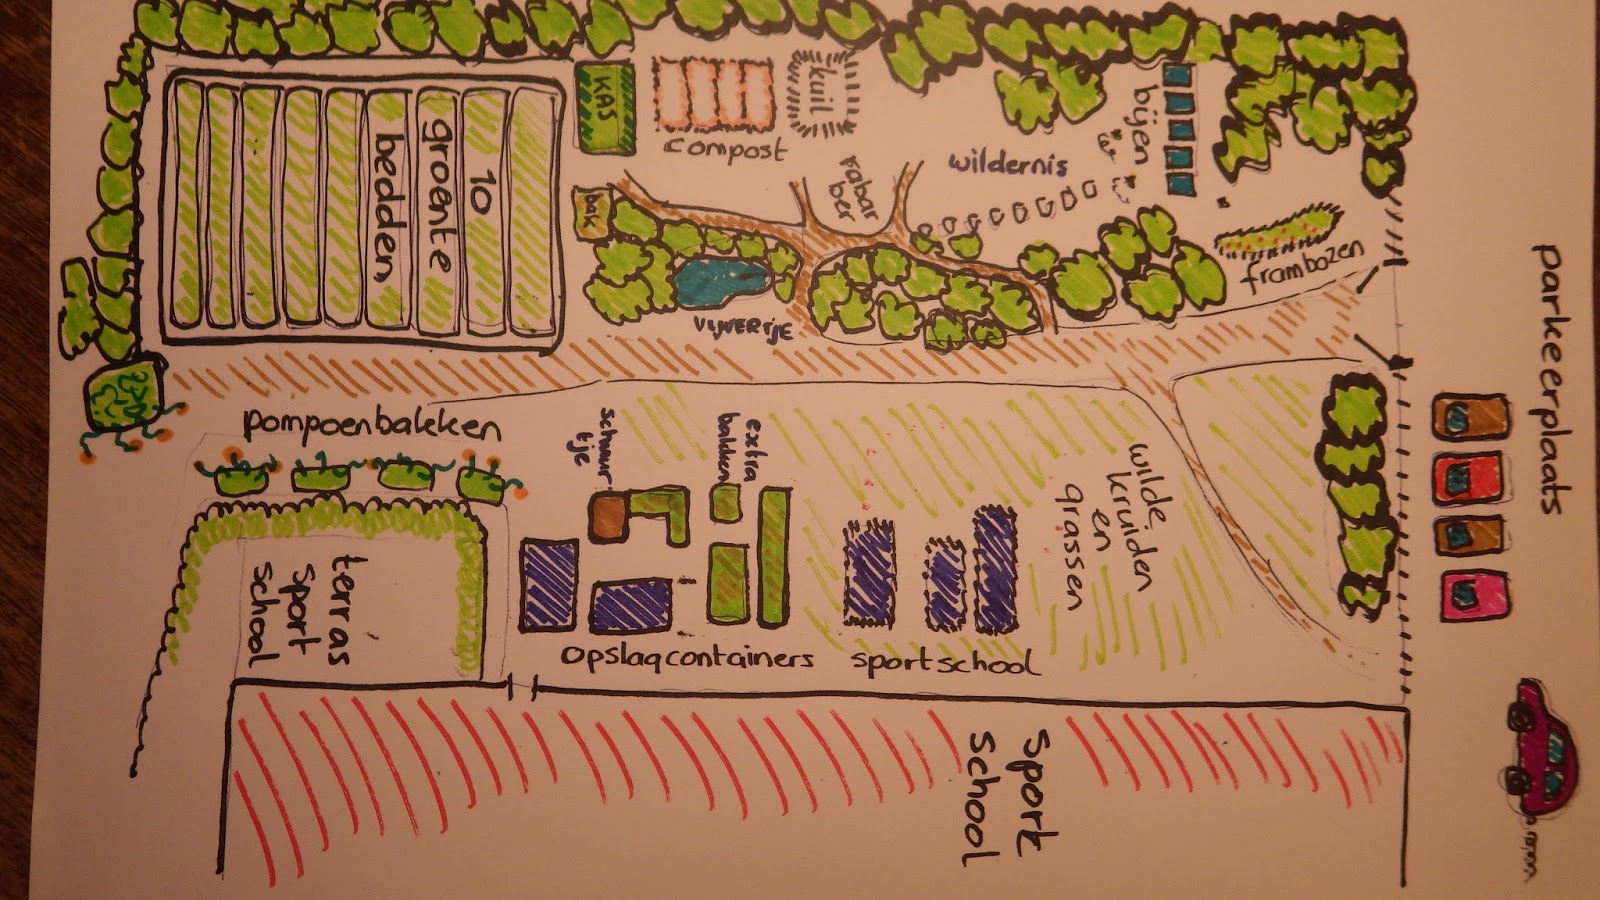 KAS
compost
kuil
bijen
wildernis
rabar
ber
frambozen
parkeerplaats
10
groente
bedden
bak
VIJVERTJE
pompoenbakken
schuur
tje
extra
bakken
wilde
kruiden
en
grassen
terras
sport
school
opslagcontainers
sportschool
sport
school